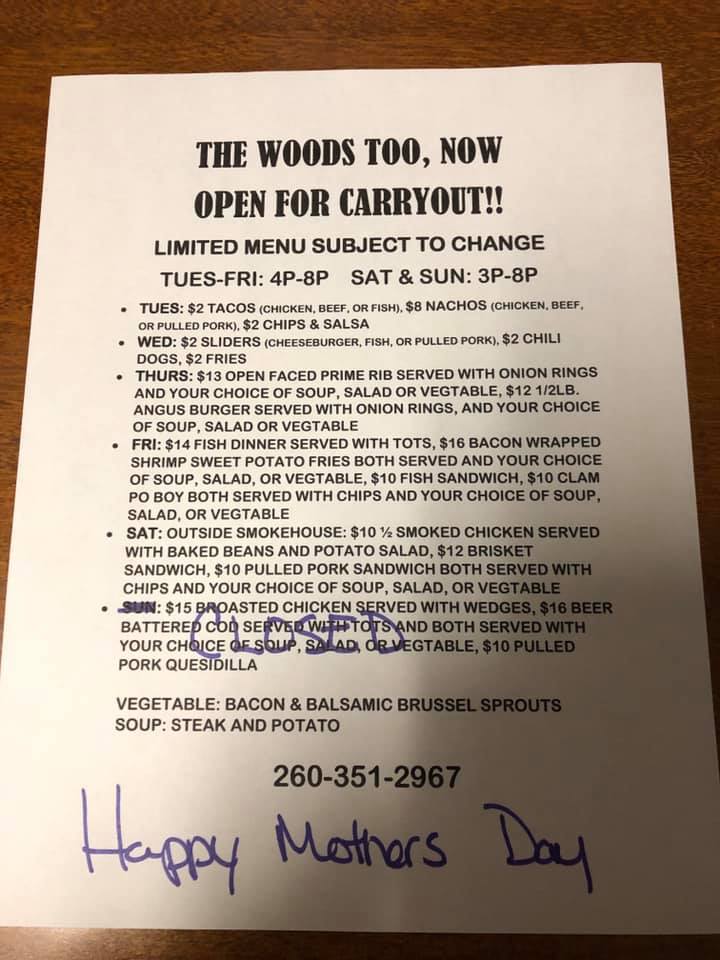 THE WOODS TOO, NOW
OPEN FOR CARRYOUT!!
LIMITED MENU SUBJECT TO CHANGE
TUES-FRI: 4P-8P SAT & SUN: 3P-8P
• TUES: $2 TACOS (CHICKEN, BEEF, OR FISH), $8 NACHOS (CHICKEN, BEEF,
OR PULLED PORK), $2 CHIPS & SALSA
• WED: $2 SLIDERS (CHEESEBURGER, FISH, OR PULLED PORK), $2 CHILI
DOGS, $2 FRIES
• THURS: $13 OPEN FACED PRIME RIB SERVED WITH ONION RINGS
AND YOUR CHOICE OF SOUP, SALAD OR VEGTABLE, $12 1/2LB.
ANGUS BURGER SERVED WITH ONION RINGS, AND YOUR CHOICE
OF SOUP, SALAD OR VEGTABLE
• FRI: $14 FISH DINNER SERVED WITH TOTS, $16 BACON WRAPPED
SHRIMP SWEET POTATO FRIES BOTH SERVED AND YOUR CHOICE
OF SOUP, SALAD, OR VEGTABLE, $10 FISH SANDWICH, $10 CLAM
PO BOY BOTH SERVED WITH CHIPS AND YOUR CHOICE OF SOUP,
SALAD, OR VEGTABLE
• SAT: OUTSIDE SMOKEHOUSE: $10 ½ SMOKED CHICKEN SERVED
WITH BAKED BEANS AND POTATO SALAD, $12 BRISKET
SANDWICH, $10 PULLED PORK SANDWICH BOTH SERVED WITH
CHIPS AND YOUR CHOICE OF SOUP, SALAD, OR VEGTABLE
• SUN: $15 BROASTED CHICKEN SERVED WITH WEDGES, $16 BEER
BATTERED COD SERVED WITH TOTS AND BOTH SERVED WITH
YOUR CHOICE OF SOUP, SALAD, OR VEGTABLE, $10 PULLED
PORK QUESIDILLA
CLOSED
VEGETABLE: BACON & BALSAMIC BRUSSEL SPROUTS
SOUP: STEAK AND POTATO
260-351-2967
Happy Mothers Day